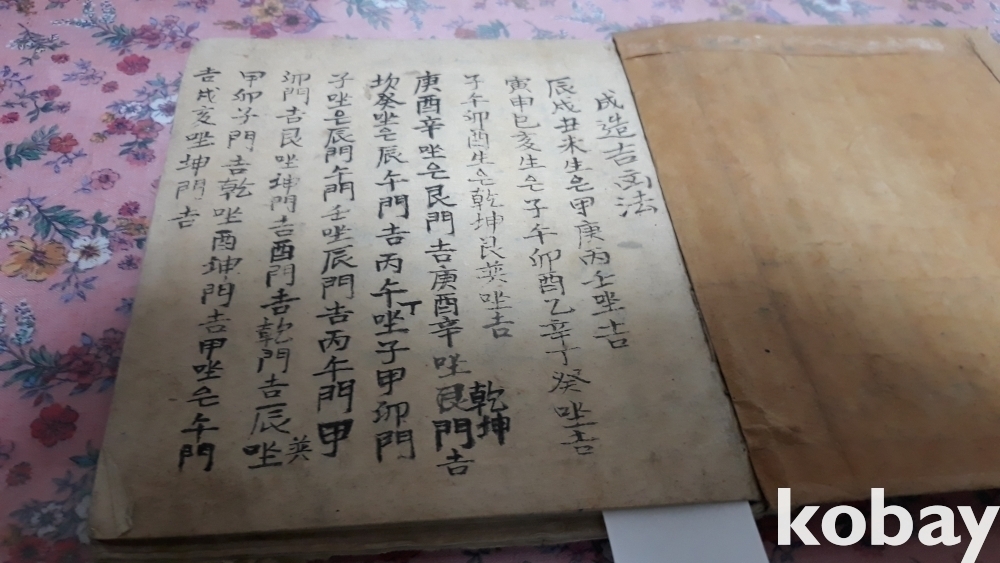 成造吉凶法
辰戌丑未生은甲庚丙壬坐吉
寅申巳亥生은子午卯酉乙辛丁癸坐吉
子午卯酉生은乾坤艮巽坐吉
庚酉辛坐은艮門吉庚酉辛坐艮門吉
乾坤
坎癸坐은辰午門吉丙午丁坐子甲卯門
子坐은辰門午門壬坐辰門吉丙午門甲
卯門吉艮坐坤門吉酉門吉乾門吉辰巽坐
甲卯子門吉乾坐酉坤門吉甲坐은午門
吉戌亥坐坤門吉
kobay